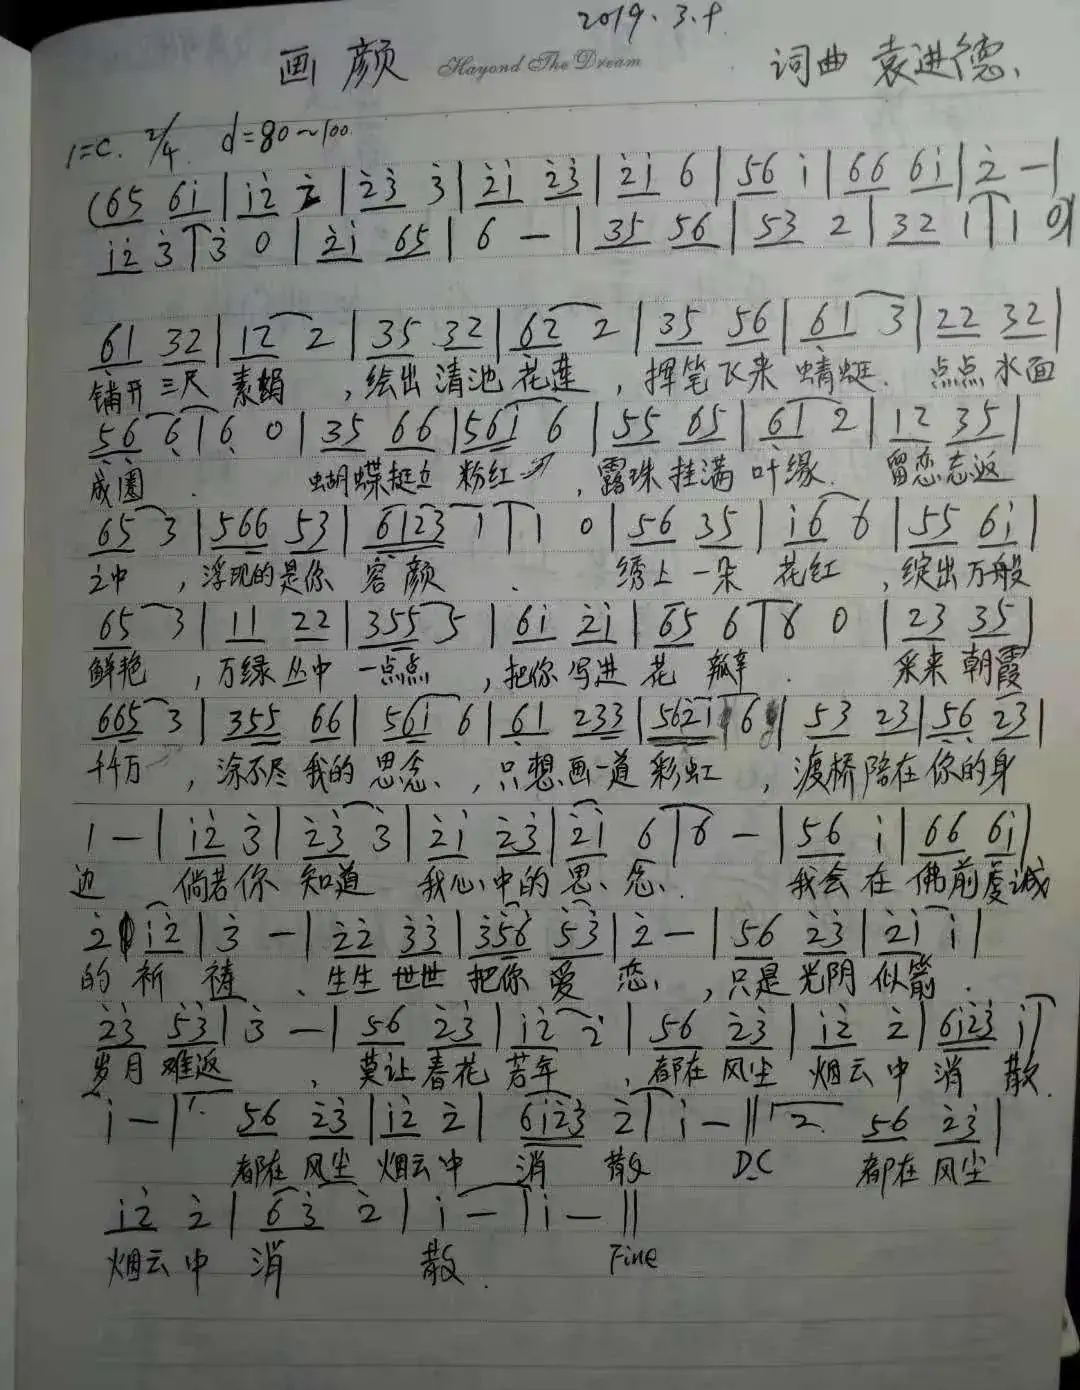 2019.3.9.
画颜 Hayond The Dream 词曲 袁进德、
1=C. 2/4. d=80~100.
(65 6i | i2̇ 2̇ | 2̇3̇ 3̇ | 2̇i 2̇3̇ | 2̇i 6 | 56 i | 66 6i | 2̇ — |
i2̇ 3̇ | 3̇ 0 | 2̇i 65 | 6 — | 35 56 | 53 2 | 32 1 | 1 0) |
6̣1 32 | 12 2 | 35 32 | 62 2 | 35 56 | 61 3 | 22 32 |
铺开 三尺 素绢 ，绘出 清池 花莲 ，挥笔 飞来 蜻蜓. 点点 水面
5̣6̣ 6̣ | 6̣ 0 | 35 66 | 561 6 | 55 65 | 6̣1 2 | 12 35 |
成圈 . 蝴蝶挺立 粉红 ，露珠 挂满 叶缘. 留恋忘返
65 3 | 566 53 | 6123 1 | 1 0 | 56 35 | i6 6 | 55 6i |
之中 ，浮现的是你 容颜 . 绣上 一朵 花红 ，绽出 万般
65 3 | 11 22 | 355 5 | 6i 2̇i | 65 6 | 6 0 | 23 35 |
鲜艳 ，万绿 丛中 一点点 ，把你 写进 花 瓣 . 采来 朝霞
665 3 | 355 66 | 561 6 | 6̣1 233 | 5621 | 6 | 53 23 | 5̣6̣ 23 |
千千万 ，涂不尽 我的 思念、 ，只想画一道 彩虹 ，渡桥陪在你的身
1 — | i2̇ 3̇ | 2̇3̇ 3̇ | 2̇i 2̇3̇ | 2̇i 6 | 6 — | 56 i | 66 6i |
边 倘若你 知道 我心中的 思、念、 我会 在 佛前虔诚
2̇ i2̇ | 3̇ — | 2̇2̇ 3̇3̇ | 3̇56 5̇3̇ | 2̇ — | 56 2̇3̇ | 2̇i i |
的 祈 祷 、生生 世世 把你 爱 恋、 ，只是 光阴 似箭 .
2̇3̇ 5̇3̇ | 3̇ — | 56 2̇3̇ | i2̇ 2̇ | 56 2̇3̇ | i2̇ 2̇ | 6i2̇3̇ i |
岁月 难返 ，莫让 春花 若年 ，都在 风尘 烟云 中 消 散.
i — | 1. 56 2̇3̇ | i2̇ 2̇ | 6i2̇3̇ 2̇ | i — || 2. 56 2̇3̇ |
都在 风尘 烟云中 消 散 D.C 都在 风尘
i2̇ 2̇ | 63̇ 2̇ | i — | i — ||
烟云 中 消 散. Fine